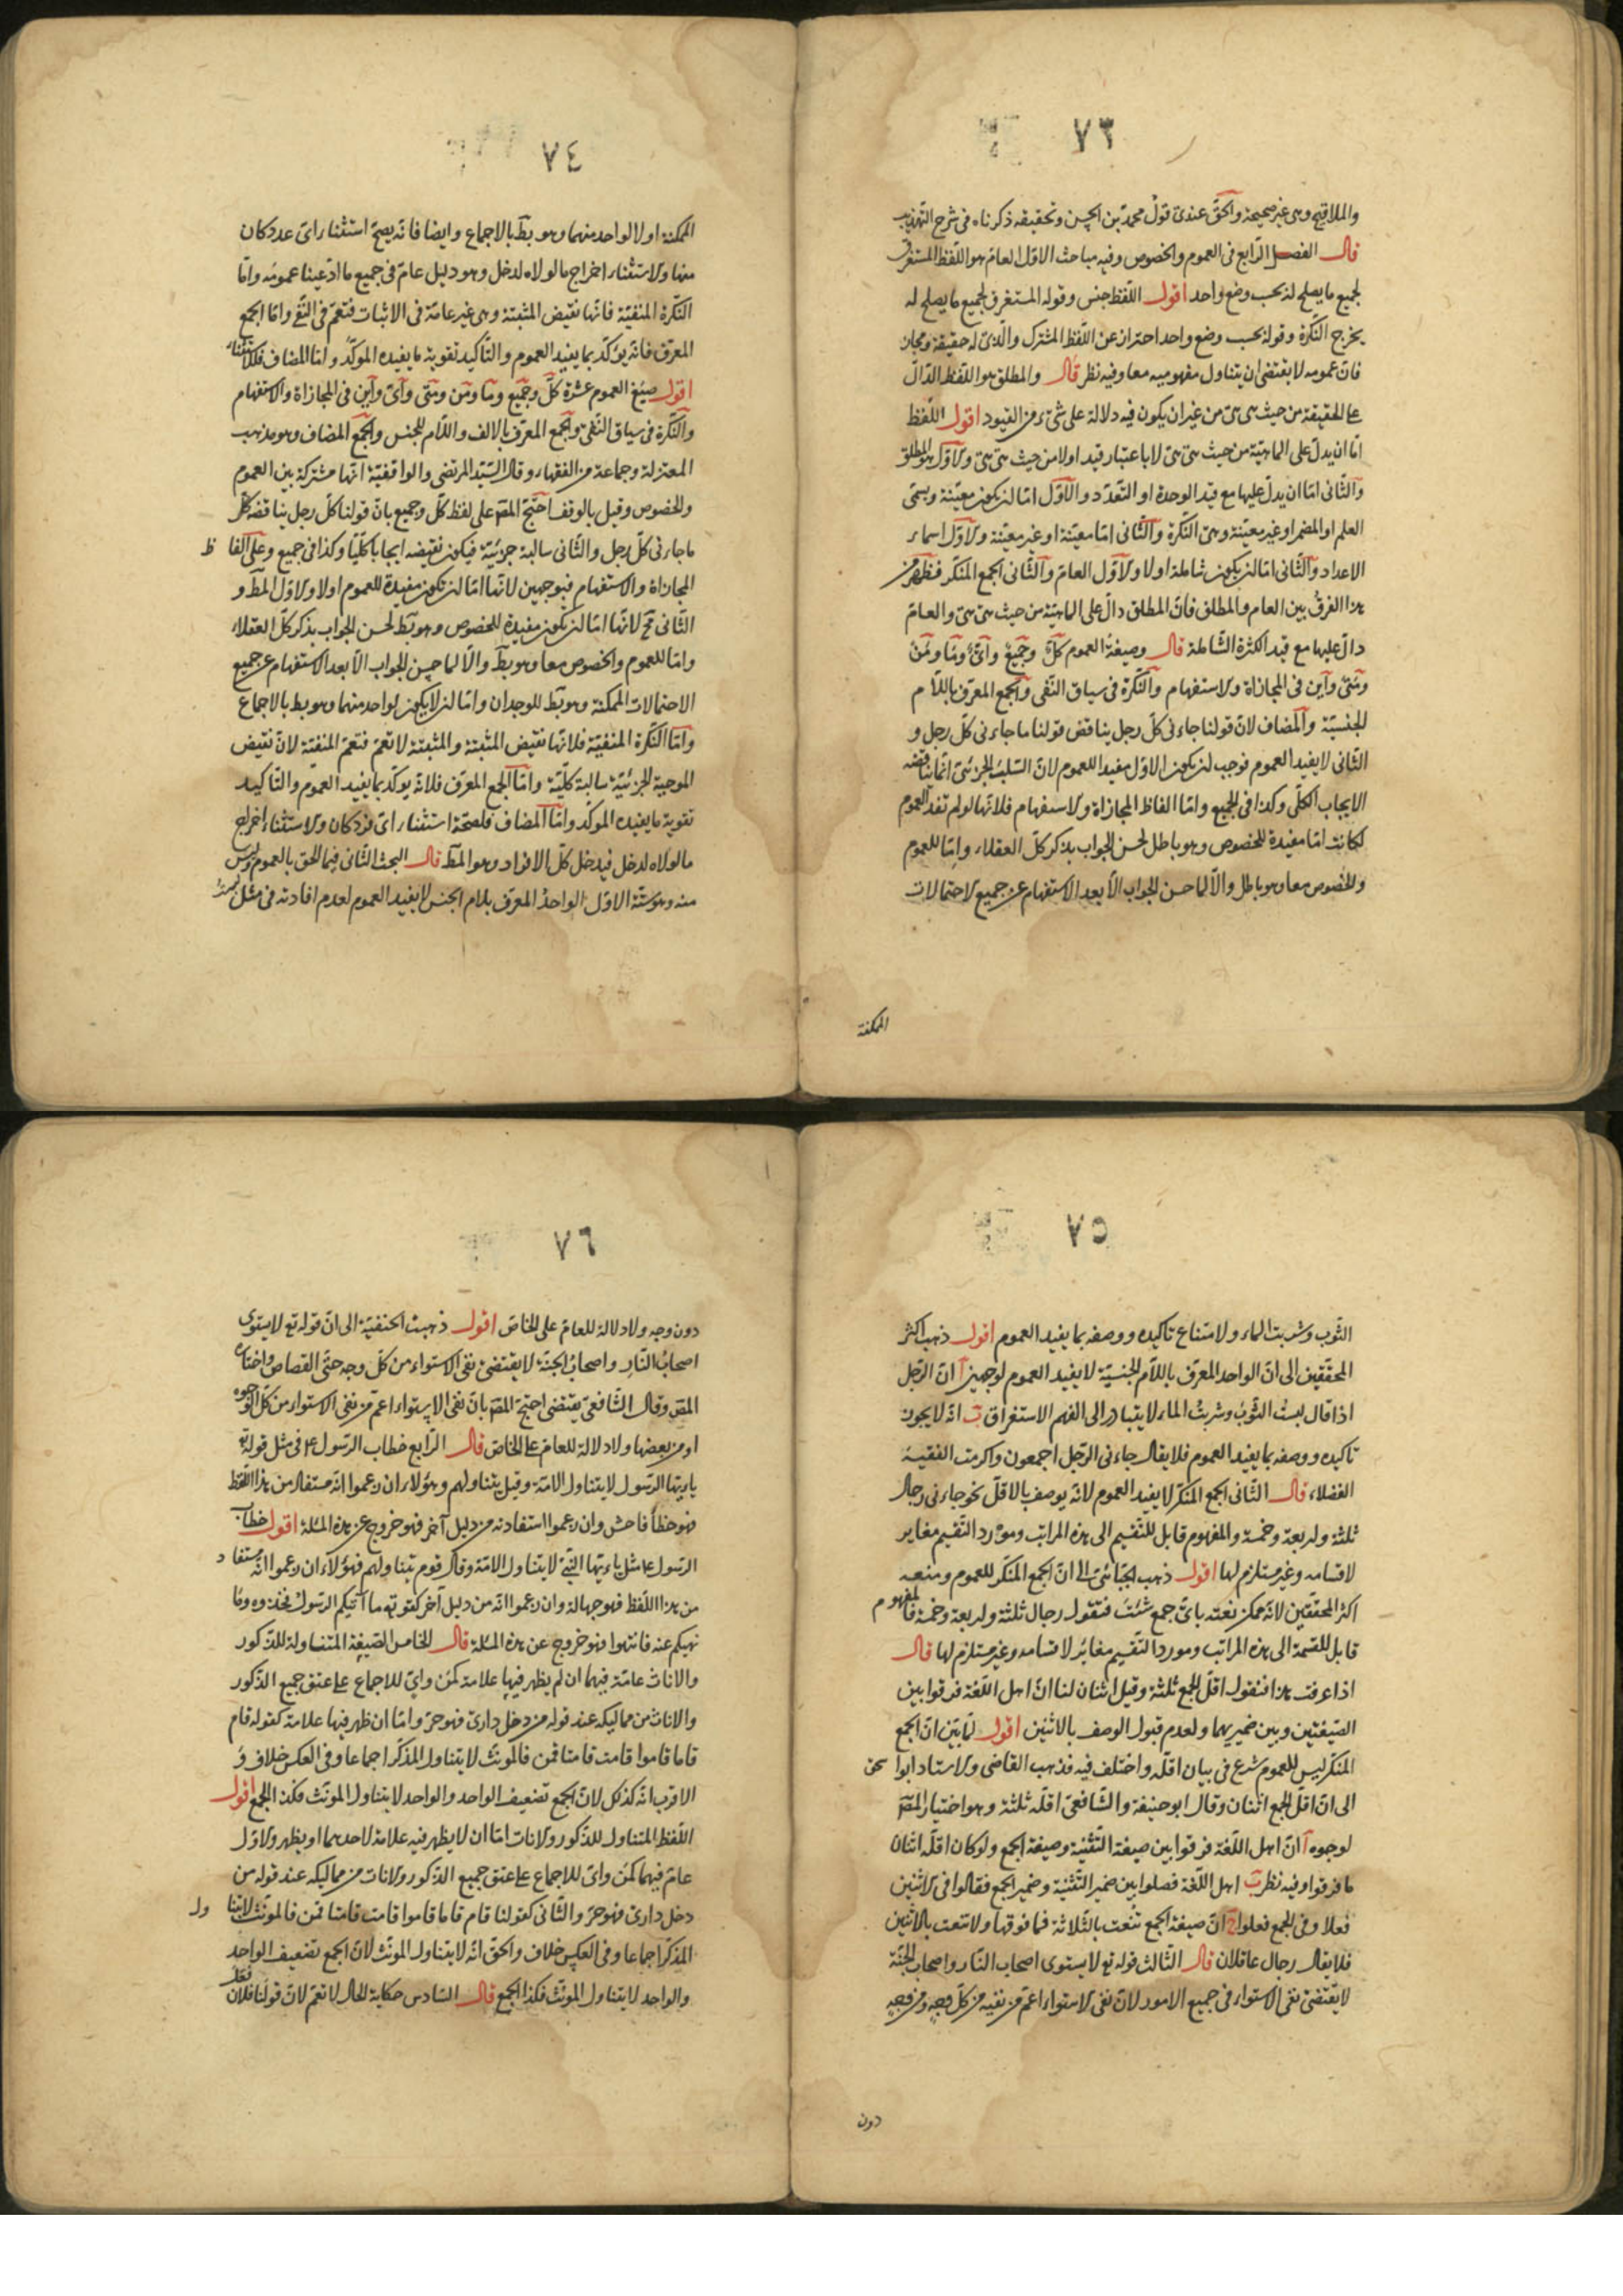 ٧٣
والملاقيح وهى غير صحيحة والحق عندى قول محمد بن الحسن وتحقيقه ذكرناه فى شرح التهذيب
قال الفصل الرابع فى العموم والخصوص وفيه مباحث الاول العام هو اللفظ المستغرق
لجميع ما يصلح له بحسب وضع واحد اقول اللفظ جنس وقوله المستغرق لجميع ما يصلح له
يخرج النكرة وقوله بحسب وضع واحد احتراز عن اللفظ المشترك والذى له حقيقة ومجاز
فان عمومه لا يقتضى ان يتناول مفهوميه معا وفيه نظر قال والمطلق هو اللفظ الدال
على الحقيقة من حيث هى هى من غير ان يكون فيه دلالة على شىء من القيود اقول اللفظ
اما ان يدل على الماهية من حيث هى هى لا باعتبار قيد او لا من حيث هى هى والاول هو المطلق
والثانى اما ان يدل عليها مع قيد الوحدة او التعدد والاول اما ان يكون معينة ويسمى
العلم او المضمر او غير معينة وهى النكرة والثانى اما معينة او غير معينة والاول اسماء
الاعداد والثانى اما ان يكون شاملة او لا والاول العام والثانى الجمع المنكر فظهر من
هذا الفرق بين العام والمطلق فان المطلق دال على الماهية من حيث هى هى والعام
دال عليها مع قيد الكثرة الشاملة قال وصيغة العموم كل وجميع واى وما ومن
ومتى واين فى المجازاة والاستفهام والنكرة فى سياق النفى والجمع المعرف باللام
الجنسية والمضاف لان قولنا جاءنى كل رجل يناقض قولنا ما جاءنى كل رجل و
الثانى لا يفيد العموم فوجب ان يكون الاول مفيدا للعموم لان السلب الجزئى انما يناقضه
الايجاب الكلى وكذا فى الجميع واما الفاظ المجازاة والاستفهام فلانها لو لم تفد العموم
لكانت اما مفيدة للخصوص وهو باطل لحسن الجواب بذكر كل العقلاء واما للعموم
والخصوص معا وهو باطل والا لما حسن الجواب الا بعد الاستفهام عن جميع الاحتمالات
الممكنة
٧٤
الممكنة او لا لواحد منهما وهو بط بالاجماع وايضا فانه يصح استثناء اى عدد كان
منها والاستثناء اخراج ما لولاه لدخل وهو دليل عام فى جميع ما ادعينا عمومه واما
النكرة المنفية فانها نقيض المثبتة وهى غير عامة فى الاثبات فتعم فى النفى واما الجمع
المعرف فانه يؤكد بما يفيد العموم والتاكيد تقوية ما يفيده المؤكد واما المضاف فللاستثناء
اقول صيغ العموم عشرة كل وجميع وما ومن ومتى واى واين فى المجازاة والاستفهام
والنكرة فى سياق النفى والجمع المعرف بالالف واللام للجنس والجمع المضاف وهو مذهب
المعتزلة وجماعة من الفقهاء وقال السيد المرتضى والواقفية انها مشتركة بين العموم
والخصوص وقيل بالوقف احتج المص على لفظ كل وجميع بان قولنا كل رجل يناقضه كل
ما جاءنى كل رجل والثانى سالبة جزئية فيكون نقيضه ايجابا كليا وكذا فى جميع وعلى الفا ظ
المجازاة والاستفهام فبوجهين لانها اما ان يكون مفيدة للعموم او لا والاول المط و
الثانى فح لانها اما ان يكون مفيدة للخصوص وهو بط لحسن الجواب بذكر كل العقلاء
واما للعموم والخصوص معا وهو بط والا لما حسن الجواب الا بعد الاستفهام عن جميع
الاحتمالات الممكنة وهو بط للوجدان واما ان لا يكون لواحد منهما وهو بط بالاجماع
واما النكرة المنفية فلانها نقيض المثبتة والمثبتة لا تعم فتعم المنفية لان نقيض
الموجبة الجزئية سالبة كلية واما الجمع المعرف فلانه يوكد بما يفيد العموم والتاكيد
تقوية ما يفيده الموكد واما المضاف فلصحة استثناء اى فرد كان والاستثناء اخراج
ما لولاه لدخل فيدخل كل الافراد وهو المط قال البحث الثانى فيما الحق بالعموم وليس
منه وهو ستة الاول الواحد المعرف بلام الجنس لا يفيد العموم لعدم افادته فى مثل لبست
٧٥
الثوب وشربت الماء ولامتناع تاكيده ووصفه بما يفيد العموم اقول ذهب اكثر
المحققين الى ان الواحد المعرف باللام الجنسية لا يفيد العموم لوجهين آ ان الرجل
اذا قال لبست الثوب وشربت الماء لا يتبادر الى الفهم الاستغراق ب انه لا يجوز
تاكيده ووصفه بما يفيد العموم فلا يقال جاءنى الرجل اجمعون واكرمت الفقيه
الفضلاء قال الثانى الجمع المنكر لا يفيد العموم لانه يوصف بالاقل نحو جاءنى رجال
ثلثة واربعة وخمسة والمفهوم قابل للتقسيم الى هذه المراتب ومورد التقسيم مغاير
لاقسامه وغير مستلزم لها اقول ذهب الجبائى الى ان الجمع المنكر للعموم ومنعه
اكثر المحققين لانه ممكن نعته باى جمع شئت فتقول رجال ثلثة واربعة وخمسة فالمفهوم
قابل للقسمة الى هذه المراتب ومورد التقسيم مغاير لاقسامه وغير مستلزم لها قال
اذا عرفت هذا فنقول اقل الجمع ثلثة وقيل اثنان لنا ان اهل اللغة فرقوا بين
الصيغتين وبين ضميريهما ولعدم قبول الوصف بالاثنين اقول لما بين ان الجمع
المنكر ليس للعموم شرع فى بيان اقله واختلف فيه فذهب القاضى والاستاد ابوا سحق
الى ان اقل الجمع اثنان وقال ابو حنيفة والشافعى اقله ثلثة وهو اختيار المص
لوجوه آ ان اهل اللغة فرقوا بين صيغة التثنية وصيغة الجمع ولو كان اقله اثنان
ما فرقوا وفيه نظر ب اهل اللغة فصلوا بين ضمير التثنية وضمير الجمع فقالوا فى الاثنين
فعلا وفى الجمع فعلوا ج ان صيغة الجمع تنعت بالثلاثة فما فوقها ولا تنعت بالاثنين
فلا يقال رجال عاقلان قال الثالث قوله تع لا يستوى اصحاب النار واصحاب الجنة
لا يقتضى نفى الاستواء فى جميع الامور لان نفى الاستواء اعم من نفيه من كل وجه ومن وجه
دون
٧٦
دون وجه ولا دلالة للعام على الخاص اقول ذهبت الحنفية الى ان قوله تع لا يستوى
اصحاب النار واصحاب الجنة لا يقتضى نفى الاستواء من كل وجه حتى القصاص واختاره
المص وقال الشافعى يقتضى احتج المص بان نفى الاستواء اعم من نفى الاستواء من كل الوجوه
او من بعضها ولا دلالة للعام على الخاص قال الرابع خطاب الرسول ع فى مثل قوله تع
يا ايها الرسول لا يتناول الامة وقيل يتناولهم وهؤلاء ان زعموا انه مستفاد من هذا اللفظ
فهو خطأ فاحش وان زعموا استفادته من دليل آخر فهو خروج عن هذه المسئلة اقول خطاب
الرسول ع مثل يا ايها النبى لا يتناول الامة وقال قوم يتناولهم فهؤلاء ان زعموا انه مستفا د
من هذا اللفظ فهو جهالة وان زعموا انه من دليل آخر كقوله تع ما آتيكم الرسول فخذوه وما
نهيكم عنه فانتهوا فهو خروج عن هذه المسئلة قال الخامس الصيغة المتناولة للذكور
والاناث عامة فيهما ان لم يظهر فيها علامة كمن واى للاجماع على عتق جميع الذكور
والاناث من مماليكه عند قوله من دخل دارى فهو حر واما ان ظهر فيها علامة كقوله قام
قاما قاموا قامت قامتا قمن فالمونث لا يتناول المذكر اجماعا وفى العكس خلاف و
الاقرب انه كذلك لان الجمع تضعيف الواحد والواحد لا يتناول المونث فكذا الجمع اقول
اللفظ المتناول للذكور والاناث اما ان لا يظهر فيه علامة لاحدهما او يظهر والاول
عام فيهما كمن واى للاجماع على عتق جميع الذكور والاناث من مماليكه عند قوله من
دخل دارى فهو حر والثانى كقولنا قام قاما قاموا قامت قامتا قمن فالمونث لا يتنا ول
المذكر اجماعا وفى العكس خلاف والحق انه لا يتناول المونث لان الجمع تضعيف الواحد
والواحد لا يتناول المونث فكذا الجمع قال السادس حكاية الحال لا تعم لان قولنا فلان فعل